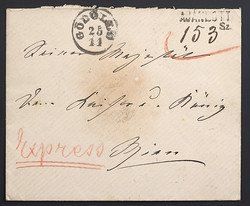 GÖDÖLLŐ
25
11
AJÁNLOTT
153
Sz.
Seiner Majestät
dem Kaiser u. König
Express
Wien